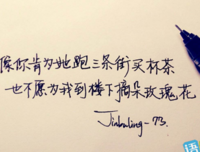 你肯为她跑三条街买杯茶
也不愿为我到楼下摘朵玫瑰花
Jinbaling-73.